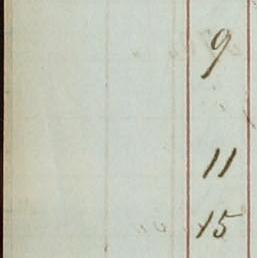 9
11
15